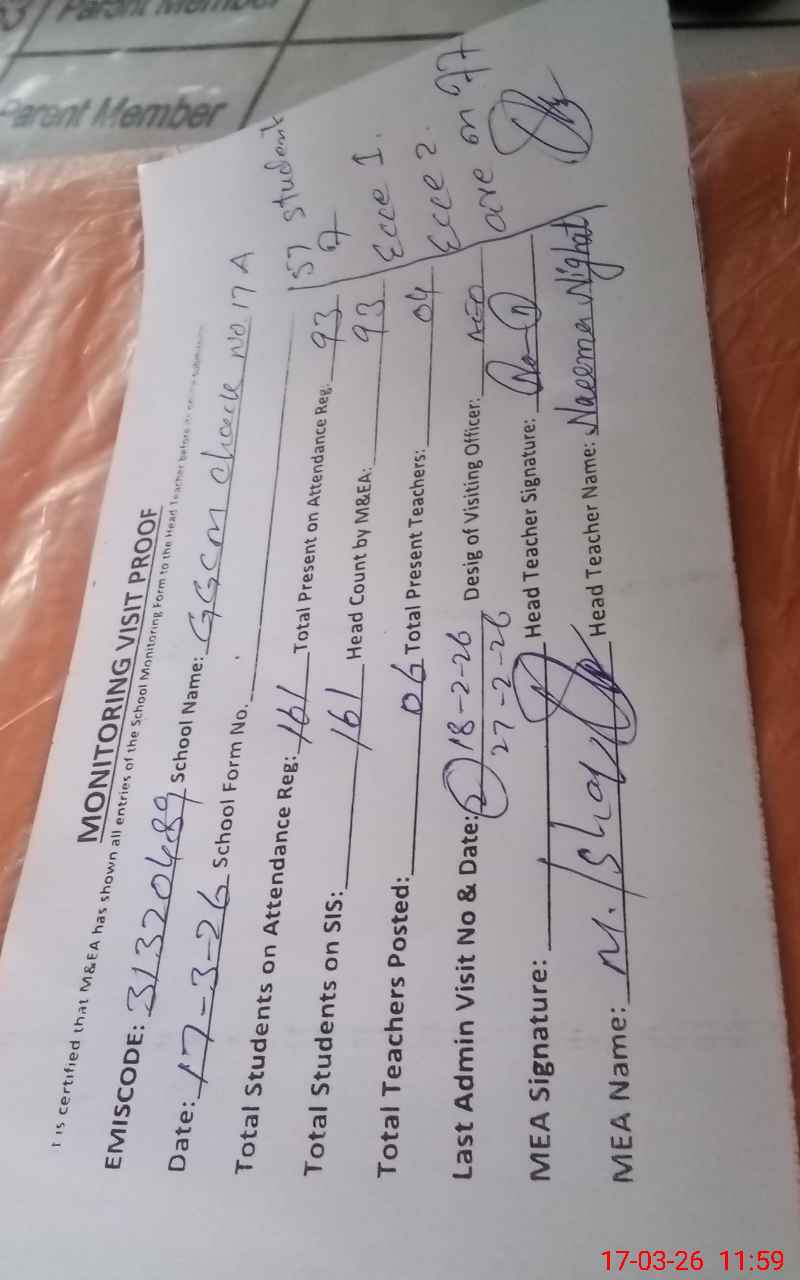 Parent Member
Parent Member
MONITORING VISIT PROOF
t is certified that M&EA has shown all entries of the School Monitoring Form to the Head Teacher before its online submission
EMISCODE: 31320489 School Name: GGCM chack No 17 A
Date: 17-3-26 School Form No.
Total Students on Attendance Reg: 161 Total Present on Attendance Reg: 93
Total Students on SIS: 161 Head Count by M&EA: 93
Total Teachers Posted: 06 Total Present Teachers: 04
Last Admin Visit No & Date: 2 18-2-26 Desig of Visiting Officer: AEO
27-2-26
MEA Signature: Head Teacher Signature:
MEA Name: M. Head Teacher Name: Naeema Nighat
157 student
Ecce 1.
Ecce 2.
are on
17-03-26 11:59